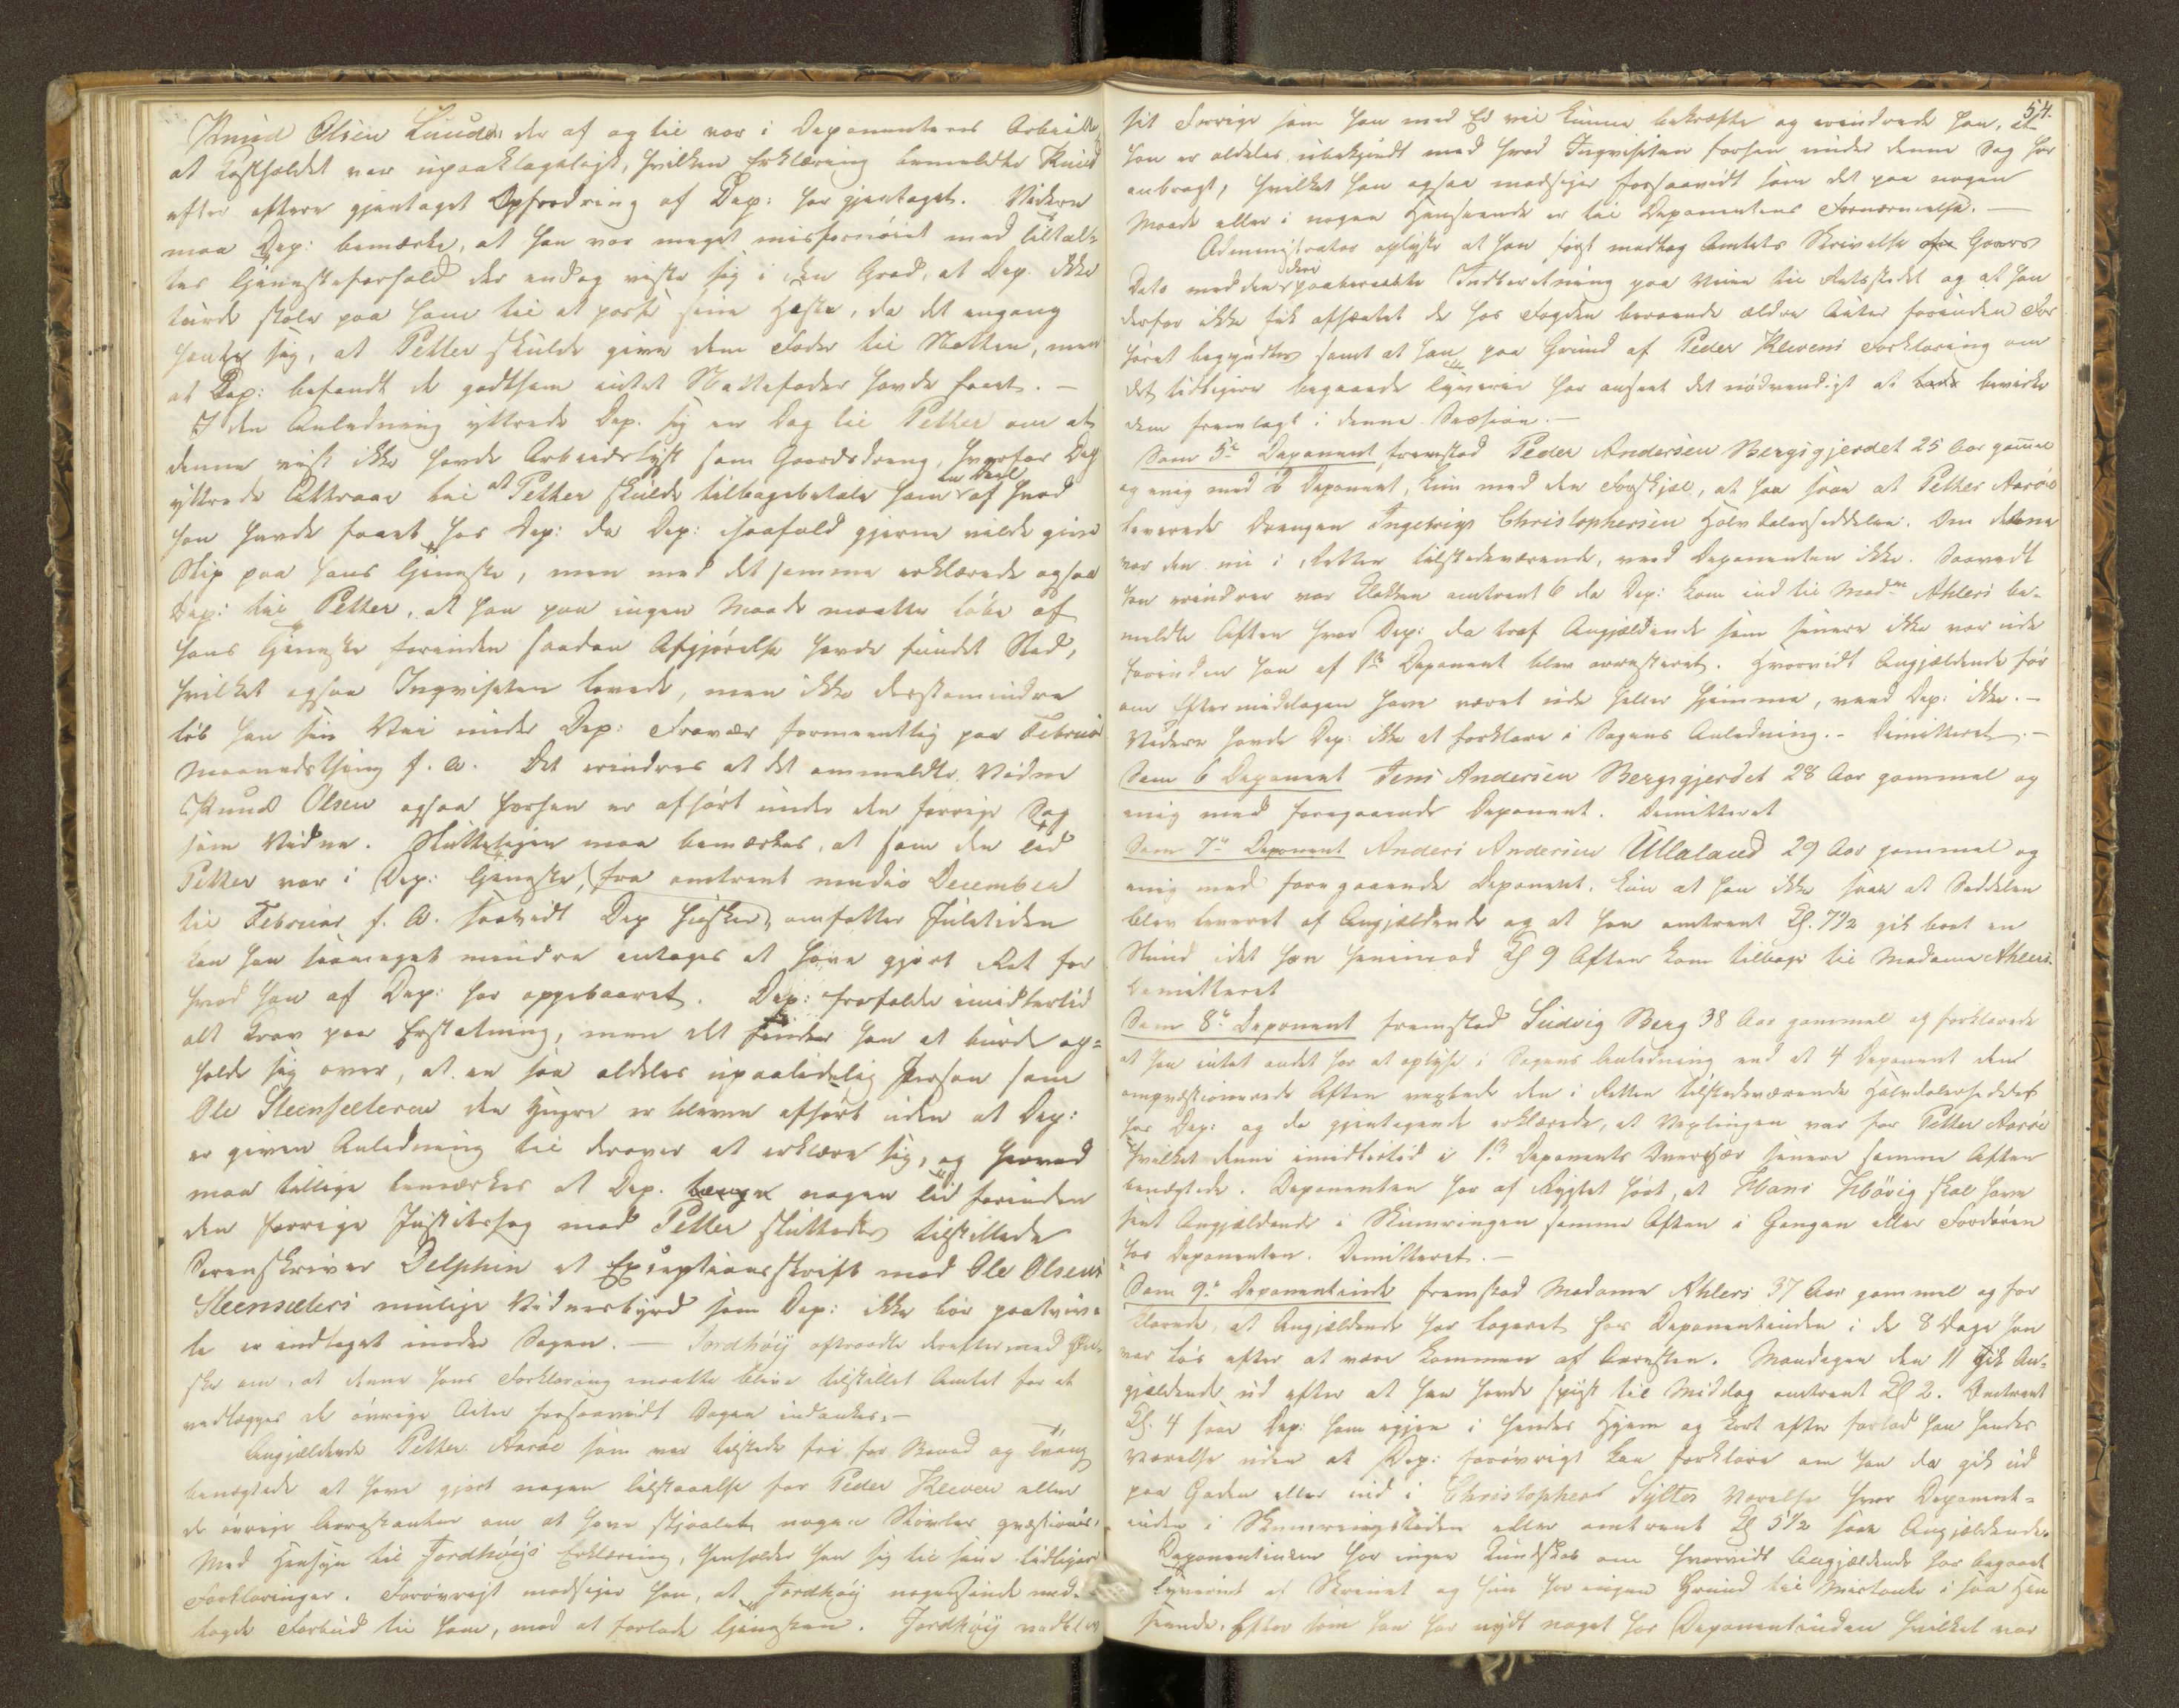 Knud Olsen Lunde, der af og til var i Deponentens Arbeide,
at Kostholdet var upaaklageligt, hvilken Erklæring bemeldte Knud
efter oftere gjentaget Opfordring af Dep: har gjentaget. Videre
maa Dep: bemærke, at han var meget misfornøiet med Tiltal-
tes Tjenesteforhold der endog viste sig i den Grad, at Dep. ikke
turde stole paa ham til at passe sine Heste, da det engang
hændte sig, at Petter skulde give dem Foder til Natten, men
at Dep: befandt de godtsom intet Nattefoder havde faaet. —
I den Anledning yttrede Dep. sig en Dag til Petter om at
denne vist ikke havde Arbeidslyst som Gaardsdreng, hvorfor Dep
yttrede Attraae til at Petter skulde tilbagebetale ham en Deel af hvad
han havde faaet hos Dep: da Dep: isaafald gjerne vilde give
Slip paa hans Tjeneste, men med det samme erklærede ogsaa
Dep: til Petter, at han paa ingen Maade maatte løbe af
hans Tjeneste forinden saadan Afgjørelse havde fundet Sted,
hvilket ogsaa Inqvisiten lovede, men ikke destomindre
løb han sin Vei under Dep: Fravær formeentlig paa Februar
Maanedsthing f. A. Det erindres at det ommeldte Vidne
Knud Olsen ogsaa forhen er afhørt under den forrige Sag
som Vidne. Sluttelig maa bemærkes, at som den Tid
Petter var i Dep: Tjeneste, (fra omtrent medio December
til Februar f. A. saavidt Dep husker) omfatter Juletiden
kan han saameget mindre antages at have gjort Ret for
hvad han af Dep: har oppebaaret. Dep: frafaldt imidlertid
alt Krav paa Erstatning, men alt finder han at burde op-
holde sig over, at en saa aldeles upaalidelig Person som
Ole Steensæteren den Yngre er bleven afhørt uden at Dep:
er given Anledning til derover at erklære sig, og herved
maa tillige bemærkes at Dep. længe nogen Tid forinden
den forrige Justitssag mod Petter sluttedes tilstillede
Sorenskriver Delphin et Exceptionsskrift mod Ole Olsens
Steensæters mulige Vidnesbyrd som Dep: ikke bør paatvivle
er indtaget under Sagen. — Jordhøÿ aftraadte derefter med Øn-
ske om, at denne hans Forklaring maatte blive tilstillet Amtet for at
vedlægges de øvrige Acter forsaavidt Sagen indankes. —
Angjældende Petter Aarøe som var tilstede fri for Baand og Tvang
benægtede at have gjort nogen Tilstaaelse for Peder Kleven eller
de øvrige Arrestanter om at have stjaalet nogen Støvler qvæstionis.
Med Hensyn til Jordhøÿs Erklæring, henholder han sig til sine tidligere
Forklaringer. Forøvrigt modsiger han, at Jordhøÿ nogensinde ned-
lagde Forbud til ham, mod at forlade Tjenesten. Jordhøÿ vedblev
54.
sit Forrige som han med Ed vil kunne bekræfte og erindrede han, at
han er aldeles ubekjendt med hvad Inqvisiten forhen under denne Sag har
anbragt, hvilket han ogsaa modsiger forsaavidt som det paa nogen
Maade eller i nogen Henseende er til Deponentens Fornærmelse. —
Administrator oplyste at han først modtog Amtets Skrivelse af Gaars
Dato med den deri paaberaabte Indberetning paa Veien til Retsstedet og at han
derfor ikke fik afhentet de hos Fogden beroende ældre Acter forinden For
høret begyndtes samt at han paa Grund af Peder Klevens Forklaring om
det tidligere begaaede Tyverie har anseet det nødvendigt at lade bevirke
dem fremlagt i denne Session. —
Som 5te Deponent fremstod Peder Andersen Bergsgjerdet 25 Aar gammel
og enig med 2 Deponent, kun med den Forskjæl, at han saae at Petter Aarøe
leverede Drengen Ingebrigt Christophersen Halvdalerseddelen. Om denne
var den nu i Retten tilstedeværende, veed Deponenten ikke. Saavidt
han erindrer var Klokken omtrent 6 da Dep: kom ind til Madme Ahlers be-
meldte Aften hvor Dep: da traf Angjældende som senere ikke var ude
forinden han af 1ste Deponent blev arresteret. Hvorvidt Angjældende før
om Eftermiddagen havde været ude heller hjemme, veed Dep: ikke. —
Videre havde Dep: ikke at forklare i Sagens Anledning. - Dimitteret. —
Som 6 Deponent Jens Andersen Bergsgjerdet 28 Aar gammel og
enig med foregaaende Deponent. Dimitteret
Som 7de Deponent Anders Andersen Ullaland 29 Aar gammel og
enig med foregaaende Deponent, kun at han ikke saae at Seddelen
blev leveret af Angjældende og at han omtrent Kl. 7½ gik bort en
Stund idet han henimod Kl 9 Aften kom tilbage til Madame Ahlers.
Dimitteret
Som 8de Deponent fremstod Ludvig Berg 38 Aar gammel og forklarede
at han intet andet har at oplyse i Sagens Anledning end at 4 Deponent den
omqvæstionerede Aften vexlede den i Retten tilstedeværende Halvdalerseddel
hos Dep: og da gjentagende erklærede, at Vexlingen var for Petter Aarøe
hvilket denne imidlertid i 1ste Deponents Overvær senere samme Aften
benægtede. Deponenten har af Rygtet hørt, at Hans Ilbörig skal have
seet Angjældende i Skumringen samme Aften i Gangen eller Fordøren
hos Deponenten. Dimitteret. —
Som 9de Deponentinde fremstod Madame Ahlers 37 Aar gammel og for
klarede, at Angjældende har logeret hos Deponentinden i de 8 Dage han
var løs efter at være kommen af Arresten. Mandagen den 11 gik An-
gjældende ud efter at han havde spiist til Middag omtrent Kl 2. Omtrent
Kl. 4 saae Dep: ham igjen i hendes Hjem og kort efter forlod han hendes
Værelse uden at Dep: forøvrigt kan forklare om han da gik ud
paa Gaden eller ind i Christopher Syltes Værelse hvor Deponent-
inden i Skumringstiden eller omtrent Kl 5½ saae Angjældende.
Deponentinden har ingen Kundskab om hvorvidt Angjældende har begaaet
Tyveriet af Skrinet og hun har ingen Grund til Mistanke i saa Hen
seende. Efter som han har nydt noget hos Deponentinden hvilket var